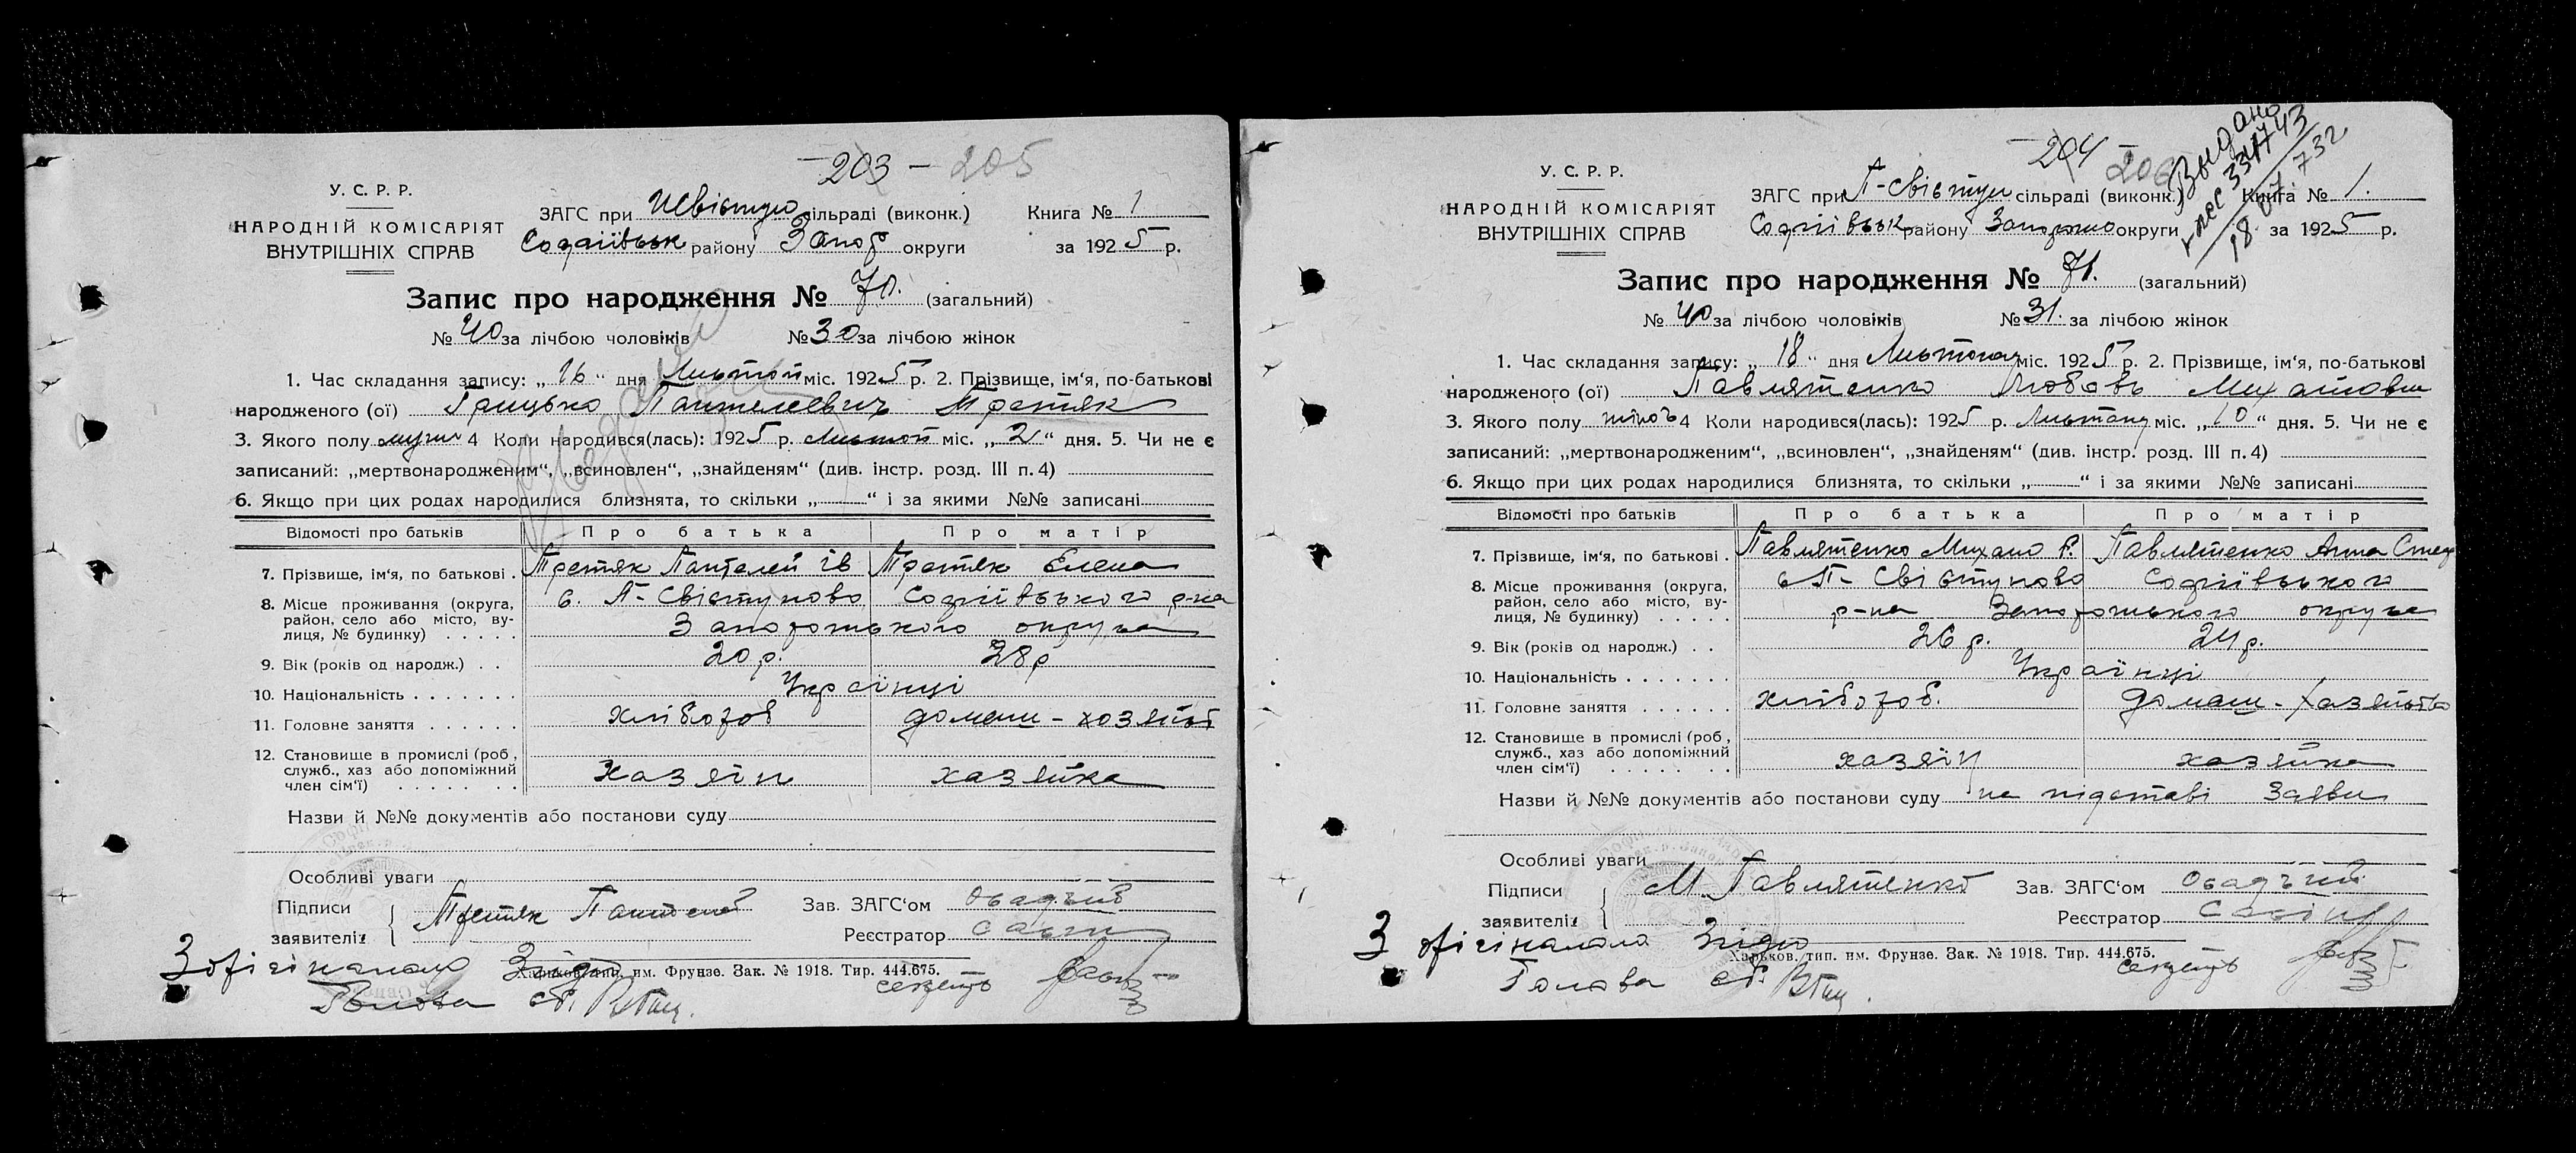 203 - 205
У. С. Р. Р.
НАРОДНІЙ КОМІСАРІЯТ
ВНУТРІШНІХ СПРАВ
ЗАГС при сільраді (виконк.) Книга № 1
Софіївськ району Запор округи за 1925 р.
Запис про народження № 70. (загальний)
№ 40 за лічбою чоловіків № 30 за лічбою жінок
1. Час складання запису: „ 16 “ дня Листоп міс. 1925 р. 2. Прізвище, ім‘я, по-батькові
народженого (ої) Грицько Пантелеевич Третяк
3. Якого полу 4 Коли народився(лась): 1925 р. Листоп міс. „ 2 “ дня. 5. Чи не є
записаний: „мертвонародженим“, „всиновлен“, „знайденям“ (див. інстр. розд. III п. 4)
6. Якщо при цих родах народилися близнята, то скільки „ “ і за якими №№ записані
Відомості про батьків Про батька Про матір
7. Прізвище, ім‘я, по батькові . Третяк Пантелей Ів Третяк Елена
8. Місце проживання (округа, район, село або місто, вулиця, № будинку) с. П-Свістуново Софіївського р-на
Запорожського округа
9. Вік (років од народж.) . . 20 р. 28 р
10. Національність . . . . . . . Українці
11. Головне заняття . . . . . . хлібороб домаш - хозяйст
12. Становище в промислі (роб, служб., хаз або допоміжний член сім‘ї) Хазяїн хазяйка
Назви й №№ документів або постанови суду
Особливі уваги
Підписи заявителів Третяк Пантелей Зав. ЗАГС‘ом
Реєстратор
З орігіналом Згідно
Харьков. тип. им. Фрунзе. Зак. № 1918. Тир. 444.675.
Голова с/р. секрет
204 206
Выдано
18
У. С. Р. Р.
НАРОДНІЙ КОМІСАРІЯТ
ВНУТРІШНІХ СПРАВ
ЗАГС при П-Свістун сільраді (виконк.) Книга № 1.
Софіївськ району Запорож округи за 1925 р.
Запис про народження № 71. (загальний)
№ 40 за лічбою чоловіків № 31. за лічбою жінок
1. Час складання запису: „ 18 “ дня Листопад міс. 1925 р. 2. Прізвище, ім‘я, по-батькові
народженого (ої) Павлятенко Любовь
3. Якого полу жіноч 4 Коли народився(лась): 1925 р. Листопад міс. „ 10 “ дня. 5. Чи не є
записаний: „мертвонародженим“, „всиновлен“, „знайденям“ (див. інстр. розд. III п. 4)
6. Якщо при цих родах народилися близнята, то скільки „ “ і за якими №№ записані
Відомості про батьків Про батька Про матір
7. Прізвище, ім‘я, по батькові . Павлятенко Михало Павлятенко Анна Степ
8. Місце проживання (округа, район, село або місто, вулиця, № будинку) с П- Свістуново Софіївського
р-на Запорожського округа
9. Вік (років од народж.) . . 26 р. 24 р.
10. Національність . . . . . . . Українці
11. Головне заняття . . . . . . хлібороб. домаш - хазяйство
12. Становище в промислі (роб, служб., хаз або допоміжний член сім‘ї) хазяїн хазяйка
Назви й №№ документів або постанови суду на підставі Заяви
Особливі уваги
Підписи заявителів М. Павлятенко Зав. ЗАГС‘ом
Реєстратор
З орігіналом Згідно
Харьков. тип. им. Фрунзе. Зак. № 1918. Тир. 444.675.
Голова с/р. секрет